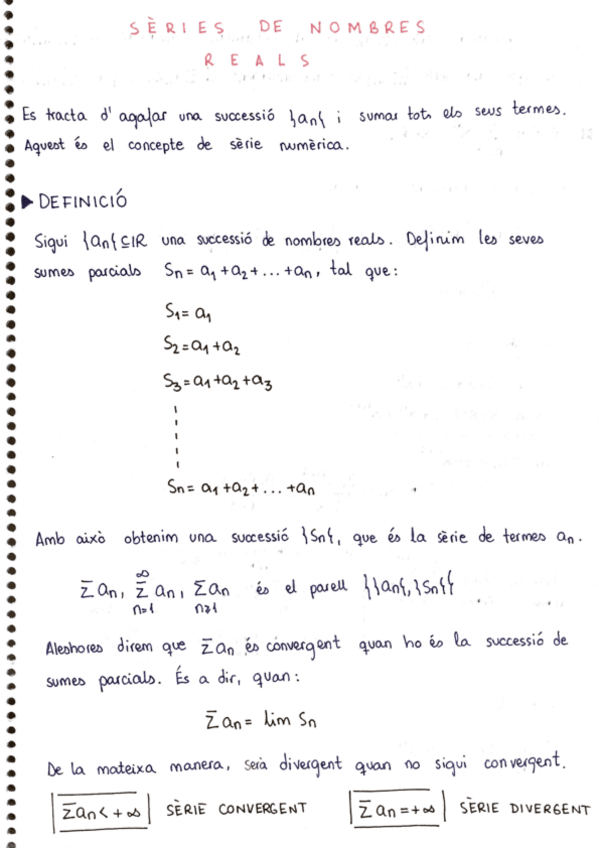 SÈRIES DE NOMBRES
REALS
Es tracta d'agafar una successió }an{ i sumar tots els seus termes.
Aquest és el concepte de sèrie numèrica.
▶ DEFINICIÓ
Sigui }an{ ⊆ IR una successió de nombres reals. Definim les seves
sumes parcials Sn = a1 + a2 + ... + an, tal que:
S1 = a1
S2 = a1 + a2
S3 = a1 + a2 + a3
Sn = a1 + a2 + ... + an
Amb això obtenim una successió }Sn{, que és la sèrie de termes an.
Σ an, ∞ Σ n=1 an, Σ n≥1 an és el parell }}an{,}Sn{{
Aleshores direm que Σ an és convergent quan ho és la successió de
sumes parcials. És a dir, quan:
Σ an = lim Sn
De la mateixa manera, serà divergent quan no sigui convergent.
Σ an < +∞ SÈRIE CONVERGENT Σ an = +∞ SÈRIE DIVERGENT